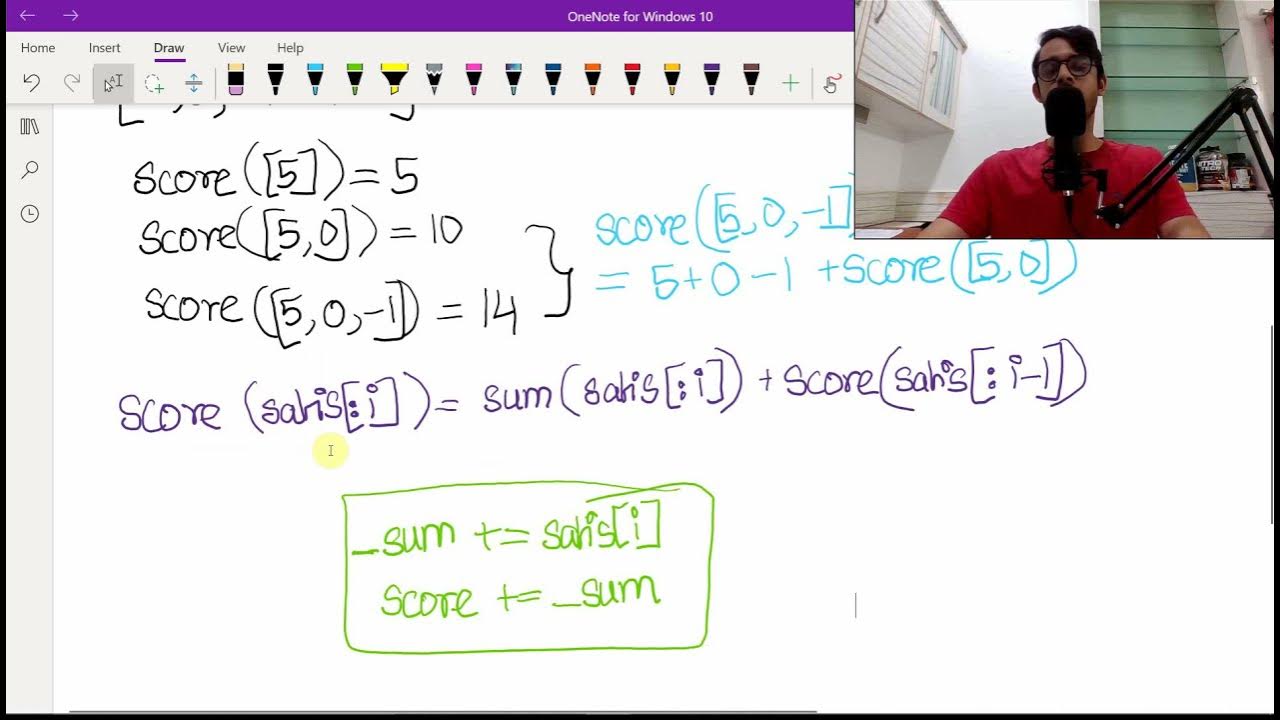 OneNote for Windows 10
Home Insert Draw View Help
score([5]) = 5
score([5,0]) = 10
score([5,0,-1]) = 14
score([5,0,-1]
= 5+0-1 +score([5,0])
score (satis[:i]) = sum(satis[:i]) + score(satis[:i-1])
_sum += satis[i]
score += _sum
NITRO
TECH